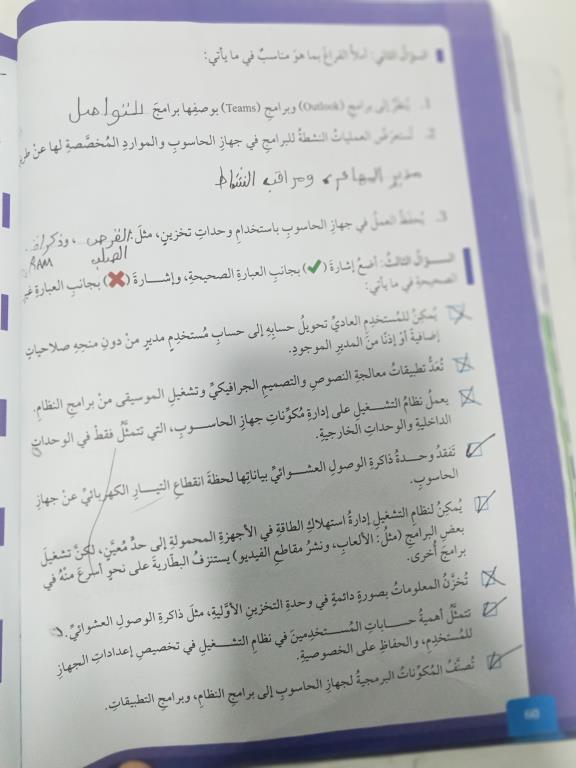 السؤال الثاني: أملأ الفراغ بما هو مناسبٌ في ما يأتي:
1. يُنظَرُ إلى برامجِ (Outlook) وبرامجِ (Teams) بوصفِها برامجَ للتواصل
2. تُستعرَضُ العملياتُ النشطةُ للبرامجِ في جهازِ الحاسوبِ والمواردِ المُخصَّصةِ لها عنْ طريق
مدير المهام، ومراقب النشاط
3. يُحفَظُ العملُ في جهازِ الحاسوبِ باستخدامِ وحداتِ تخزينٍ، مثلَ: القرص، وذاكرة
الصلب RAM
الســؤال الثالث: أضعُ إشارةَ (✓) بجانبِ العبارةِ الصحيحةِ، وإشــارةَ (✗) بجانبِ العبارةِ غيرِ
الصحيحةِ في ما يأتي:
يُمكِنُ للمُستخدِمِ العاديِّ تحويلُ حسابِهِ إلى حسابِ مُستخدِمٍ مديرٍ منْ دونِ منحِهِ صلاحياتٍ
إضافيةً أوْ إذنًا منَ المديرِ الموجودِ.
تُعَدُّ تطبيقاتُ معالجةِ النصوصِ والتصميمِ الجرافيكيِّ وتشغيلِ الموسيقى منْ برامجِ النظامِ.
يعملُ نظامُ التشــغيلِ على إدارةِ مُكوِّناتِ جهازِ الحاســوبِ، التي تتمثَّلُ فقطْ في الوحداتِ
الداخليةِ والوحداتِ الخارجيةِ.
تَفقدُ وحــدةُ ذاكرةِ الوصولِ العشــوائيِّ بياناتِها لحظةَ انقطاعِ التيــارِ الكهربائيِّ عنْ جهازِ
الحاسوبِ.
يُمكِنُ لنظامِ التشغيلِ إدارةُ استهلاكِ الطاقةِ في الأجهزةِ المحمولةِ إلى حدٍّ مُعيَّنٍ، لكنَّ تشغيلَ
بعضِ البرامجِ (مثلُ: الألعابِ، ونشرُ مقاطعِ الفيديو) يستنزفُ البطّاريةَ على نحوٍ أسرعَ منْهُ في
برامجَ أُخرى.
تُخزَّنُ المعلوماتُ بصورةٍ دائمةٍ في وحدةِ التخزينِ الأوَّليةِ، مثلَ ذاكرةِ الوصولِ العشوائيِّ.
تتمثَّلُ أهميةُ حســاباتِ المُســتخدِمينَ في نظامِ التشــغيلِ في تخصيصِ إعداداتِ الجهازِ
للمُستخدِمِ، والحفاظِ على الخصوصيةِ.
تُصنَّفُ المُكوِّناتُ البرمجيةُ لجهازِ الحاسوبِ إلى برامجِ النظامِ، وبرامجِ التطبيقاتِ.
60